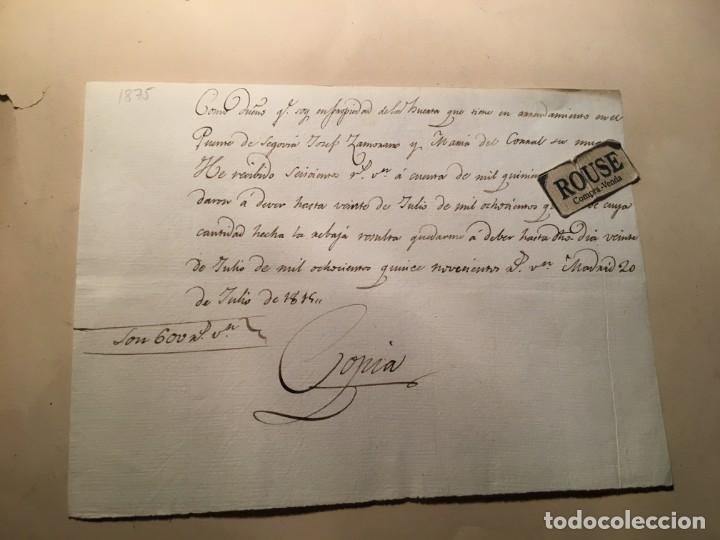 1875
Como Dueño q.e soy en propiedad de la huerta que tiene en arrendamiento en el
Puente de Segovia Josef Zamorano y Maria del Corral su
He recibido Seiscientos r.s v.n á cuenta de mil quinien
daron á dever hasta veinte de Julio de mil ochocientos de cuya
cantidad hecha la rebaja resulta quedarme á deber hasta dho dia veinte
de Julio de mil ochocientos quince novecientos r.s v.n Madrid 20
de Julio de 1815,,
Son 600 r.s v.n
Copia
ROUSE
Compra-Venta
todocoleccion.net